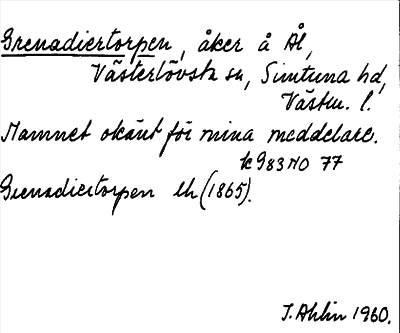 Grenadiertorpen, åker å Ål,
Västerlövsta sn, Simtuna hd,
Västm. l.
Namnet okänt för mina meddelare.
k 983 NO 77
Grenadiertorpen lk (1865).
J. Ahlin 1960.